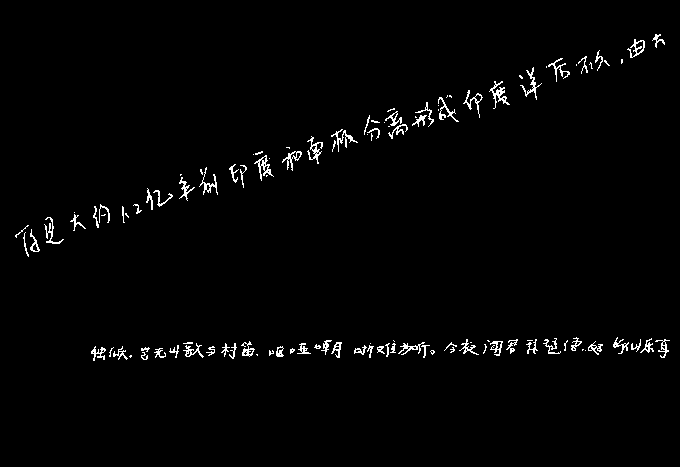 大约1.2亿年前印度和南极分离形成印度洋后不久,由大
岂无山歌与村笛,呕哑嘲哳难为听。今夜闻君琵琶语,如听仙乐耳